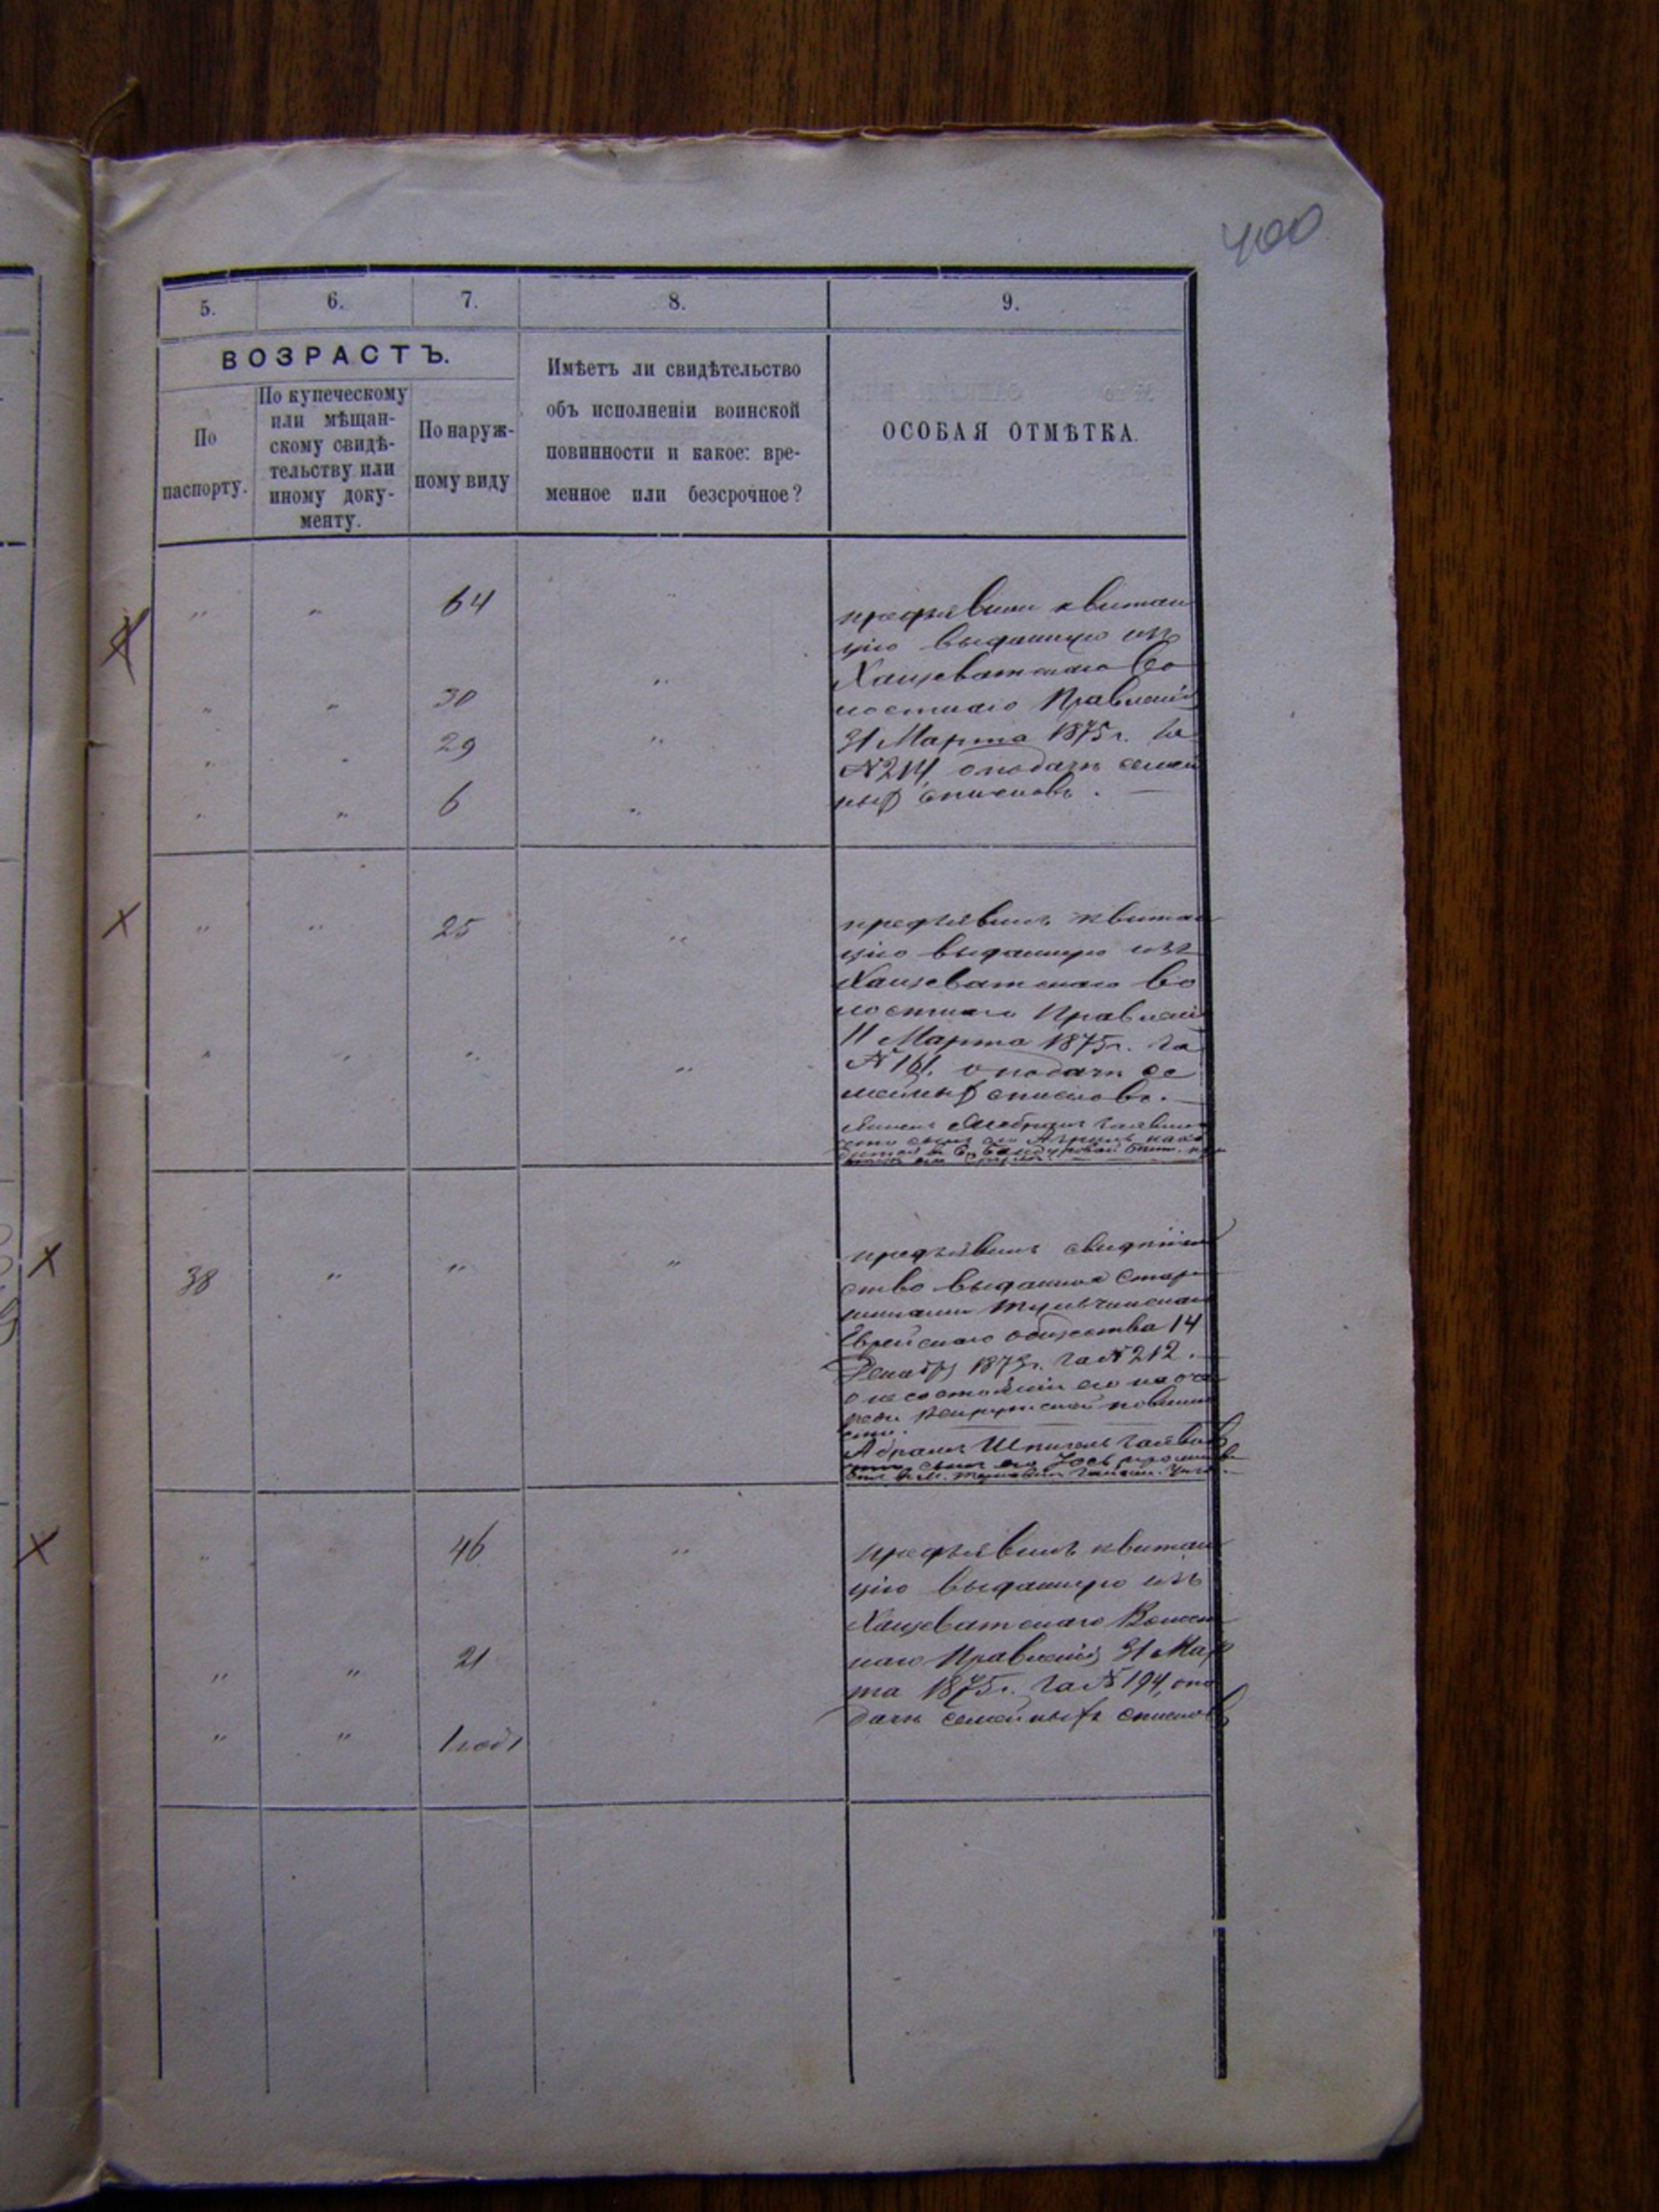 400
5. 6. 7. 8. 9.
ВОЗРАСТЪ.
По
паспорту.
По купеческому
или мѣщан-
скому свидѣ-
тельству или
иному доку-
менту.
По наруж-
ному виду
Имѣетъ ли свидѣтельство
объ исполненіи воинской
повинности и какое: вре-
менное или безсрочное?
ОСОБАЯ ОТМѢТКА.
" " 64 "
" " 30 "
" " 29 "
" " 6 "
предъявили квитан
цію выданную изъ
Хащеватскаго Во
лостнаго Правленія
31 Марта 1875 г. за
№ 214, о подачи семей
ныхъ списковъ.
" " 25 "
" " " "
предъявилъ квитан
цію выданную изъ
Хащеватскаго Во
лостнаго Правленія
11 Марта 1875 г. за
№ 161. о подачи се
мейныхъ списковъ.
38 " " "
предъявилъ свидѣтель
ство выданное Стар
шинами Тульчинскаго
Еврейскаго общества 14
Декабря 187 г. за № 212.
о не состояніи его на оче
реди Рекрутской повинно
сти.
Абрамъ Шпигель заявилъ
что сынъ его Іось
" " 46 "
" " 21
" " 1 годъ
предъявилъ квитан
цію выданную изъ
Хащеватскаго Волост
наго Правленія 31 Мар
та 1875 г. за № 194, о по
дачи семейныхъ списковъ